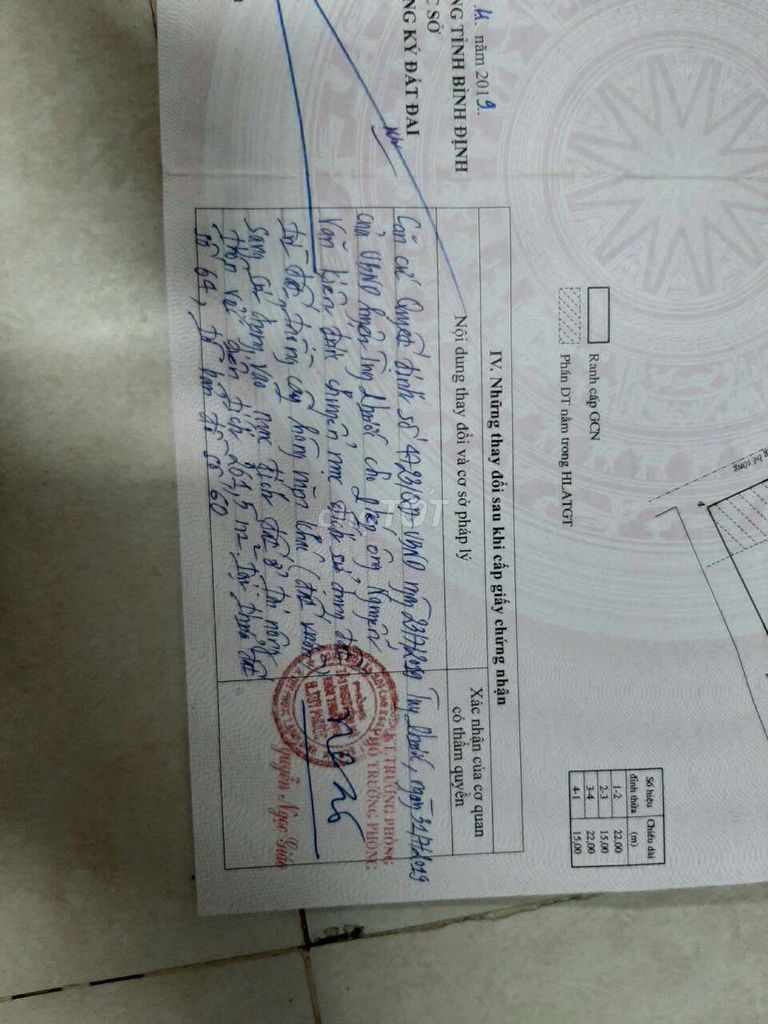 .. năm 2019..
NG TỈNH BÌNH ĐỊNH
C SỞ
NG KÝ ĐẤT ĐAI
Ranh cấp GCN
Phần DT nằm trong HLATGT
4
Số hiệu đỉnh thửa
Chiều dài (m)
1-2 22.00
2-3 15.00
3-4 22.00
4-1 15.00
IV. Những thay đổi sau khi cấp giấy chứng nhận
Nội dung thay đổi và cơ sở pháp lý
Xác nhận của cơ quan có thẩm quyền
Căn cứ Quyết định số UBND ngày 23/7/2019
của UBND huyện Tuy Phước ông Nguyễn
Văn chuyển mục đích sử dụng đất
từ đất trồng cây hàng năm khác
sang sử dụng vào mục đích đất ở tại nông
thôn với diện tích 201,5 m2 tại thửa đất
số 64, tờ bản đồ số 60
Tuy Phước, ngày 31/7/2019
KT. TRƯỞNG PHÒNG
PHÓ TRƯỞNG PHÒNG
Nguyễn Ngọc
CHỢ TỐT